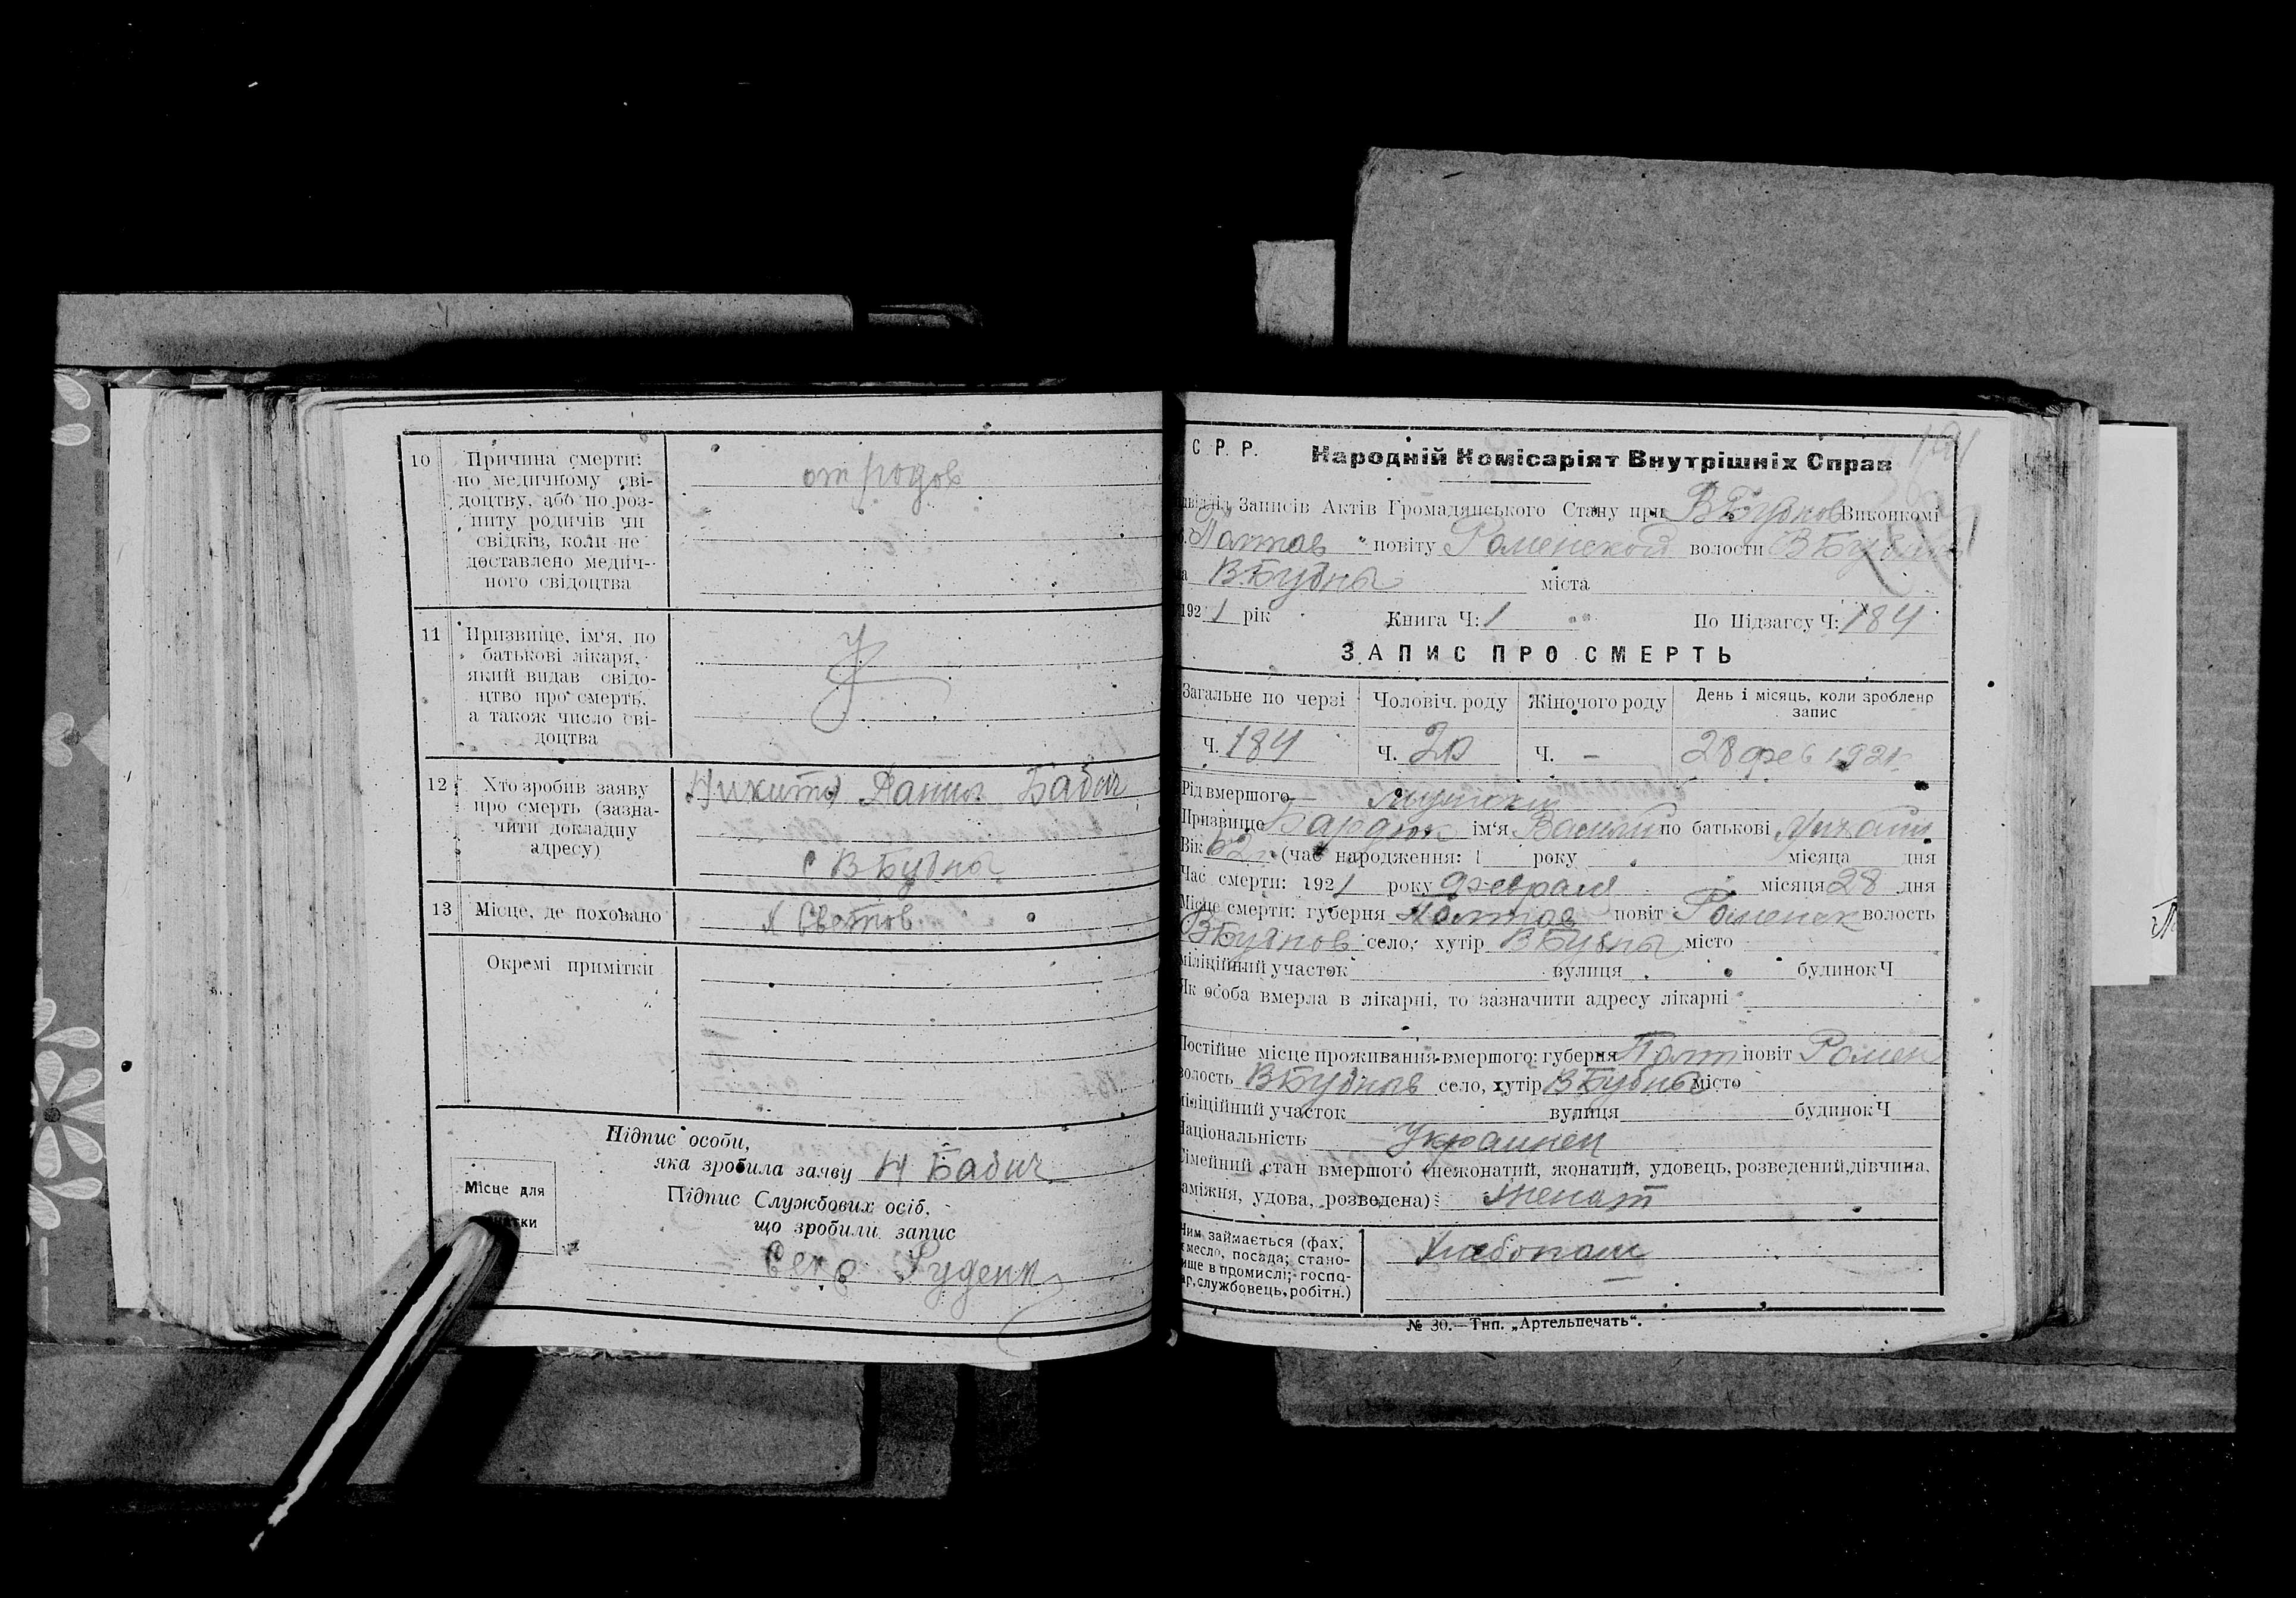 10 Причина смерти:
по медичному сві-
доцтву, або по роз-
питу родичів чи
свідків, коли не
доставлено медич-
ного свідоцтва
от родов
11 Призвище, ім'я, по
батькові лікаря,
який видав свідо-
цтво про смерть,
а також число сві-
доцтва
12 Хто зробив заяву
про смерть (зазна-
чити докладну
адресу)
Никита Данил Бабич
с В Бубны
13 Місце, де поховано
Окремі примітки
Підпис особи,
яка зробила заяву Н Бабич
Підпис Службових осіб,
що зробили запис
Місце для
Секр Руденк
С Р. Р. Народній Комісаріят Внутрішніх Справ
Записів Актів Громадянського Стану при В Бубнов Виконкомі
Полтав повіту Роменской волости В Бубнов
В.Бубны міста
1921 рік Книга Ч: 1 По Підзагсу Ч: 184
ЗАПИС ПРО СМЕРТЬ
Загальне по черзі Чоловіч. роду Жіночого роду День і місяць, коли зроблено
запис
Ч. 184 Ч. Ч. — 28 фев 1921г
Рід вмершого— мужской
Призвище Бардюк ім'я Василий по батькові Михаил
Вік 62 (час народження: 1 року місяца дня
Час смерти: 1921 року февраля місяця 28 дня
Місце смерти: губерня Полтав повіт Роменск волость
В Бубнов село, хутір В Бубны місто
міліційний участок вулиця будинок Ч
Як особа вмерла в лікарні, то зазначити адресу лікарні
Постійне місце проживання вмершого: губерня Полт повіт Ромен
волость В Бубнов село, хутір В Бубны місто
міліційний участок вулиця будинок Ч
Національність Украинец
Сімейний стан вмершого (нежонатий, жонатий, удовець, розведений, дівчина,
заміжня, удова, розведена): женат
Чим займається (фах,
ремесло, посада; стано-
вище в промислі; госпо-
дар, службовець, робітн.)
Хлебопаш
№ 30.—Тип. „Артельпечать".